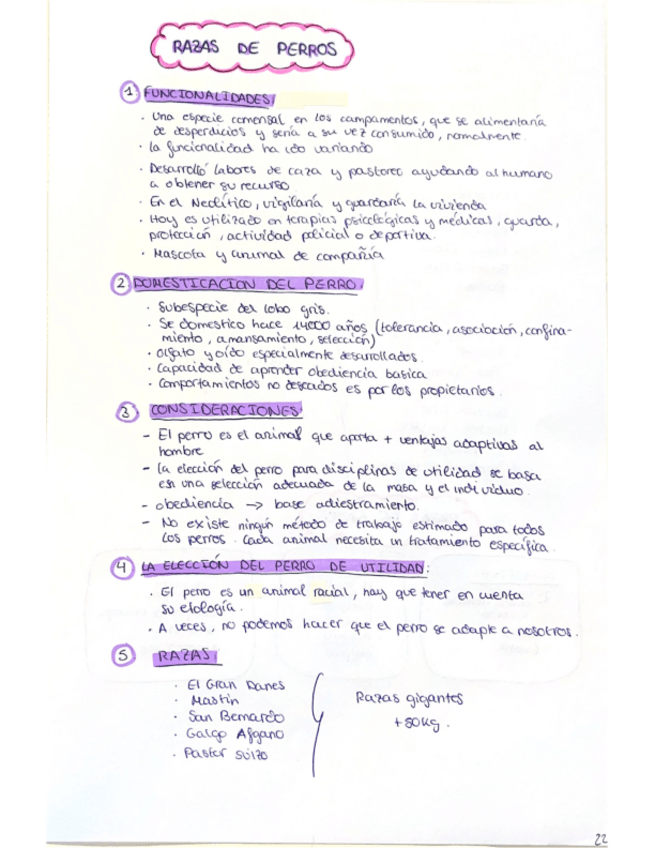 RAZAS DE PERROS
1 FUNCIONALIDADES
· Una especie comensal en los campamentos, que se alimentaría
de desperdicios y sería a su vez consumido, normalmente.
· La funcionalidad ha ido variando
· Desarrolló labores de caza y pastoreo ayudando al humano
a obtener su recurso.
· En el Neolítico, vigilaría y guardaría la vivienda
· Hoy es utilizado en terapias psicológicas y médicas, guarda,
protección, actividad policial o deportiva.
· Mascota y animal de compañía
2 DOMESTICACION DEL PERRO:
· Subespecie del lobo gris.
· Se domestico hace 14000 años (tolerancia, asociación, confina-
miento, amansamiento, selección)
· Olfato y oído especialmente desarrollados.
· Capacidad de aprender obediencia basica
· Comportamientos no deseados es por los propietarios.
3 CONSIDERACIONES
- El perro es el animal que aporta + ventajas adaptivas al
hombre
- La elección del perro para disciplinas de utilidad se basa
en una selección adecuada de la masa y el individuo.
- obediencia → base adiestramiento.
- No existe ningún método de trabajo estimado para todos
los perros. Cada animal necesita un tratamiento específica.
4 LA ELECCIÓN DEL PERRO DE UTILIDAD:
· El perro es un animal racial, hay que tener en cuenta
su etología.
· A veces, no podemos hacer que el perro se adapte a nosotros.
5 RAZAS
· El Gran Danes
· Mastín
· San Bernardo
· Galgo Afgano
· Pastor suizo
Razas gigantes
+50kg.
22